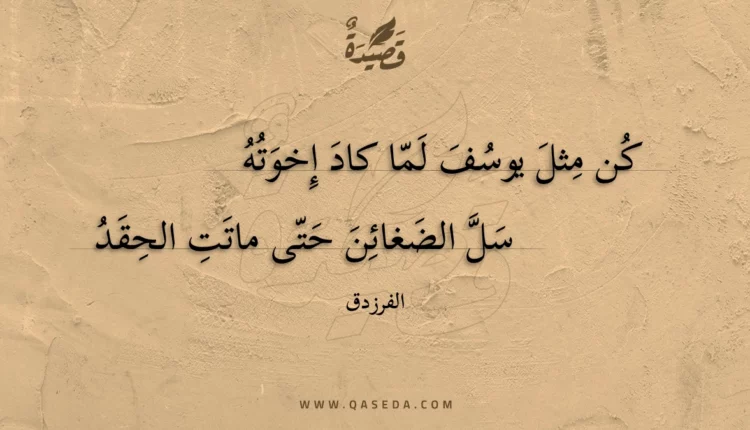 قَصِيدَةٌ
كُن مِثلَ يوسُفَ لَمّا كادَ إِخوَتُهُ
سَلَّ الضَغائِنَ حَتّى ماتَتِ الحِقَدُ
الفرزدق
WWW.QASEDA.COM